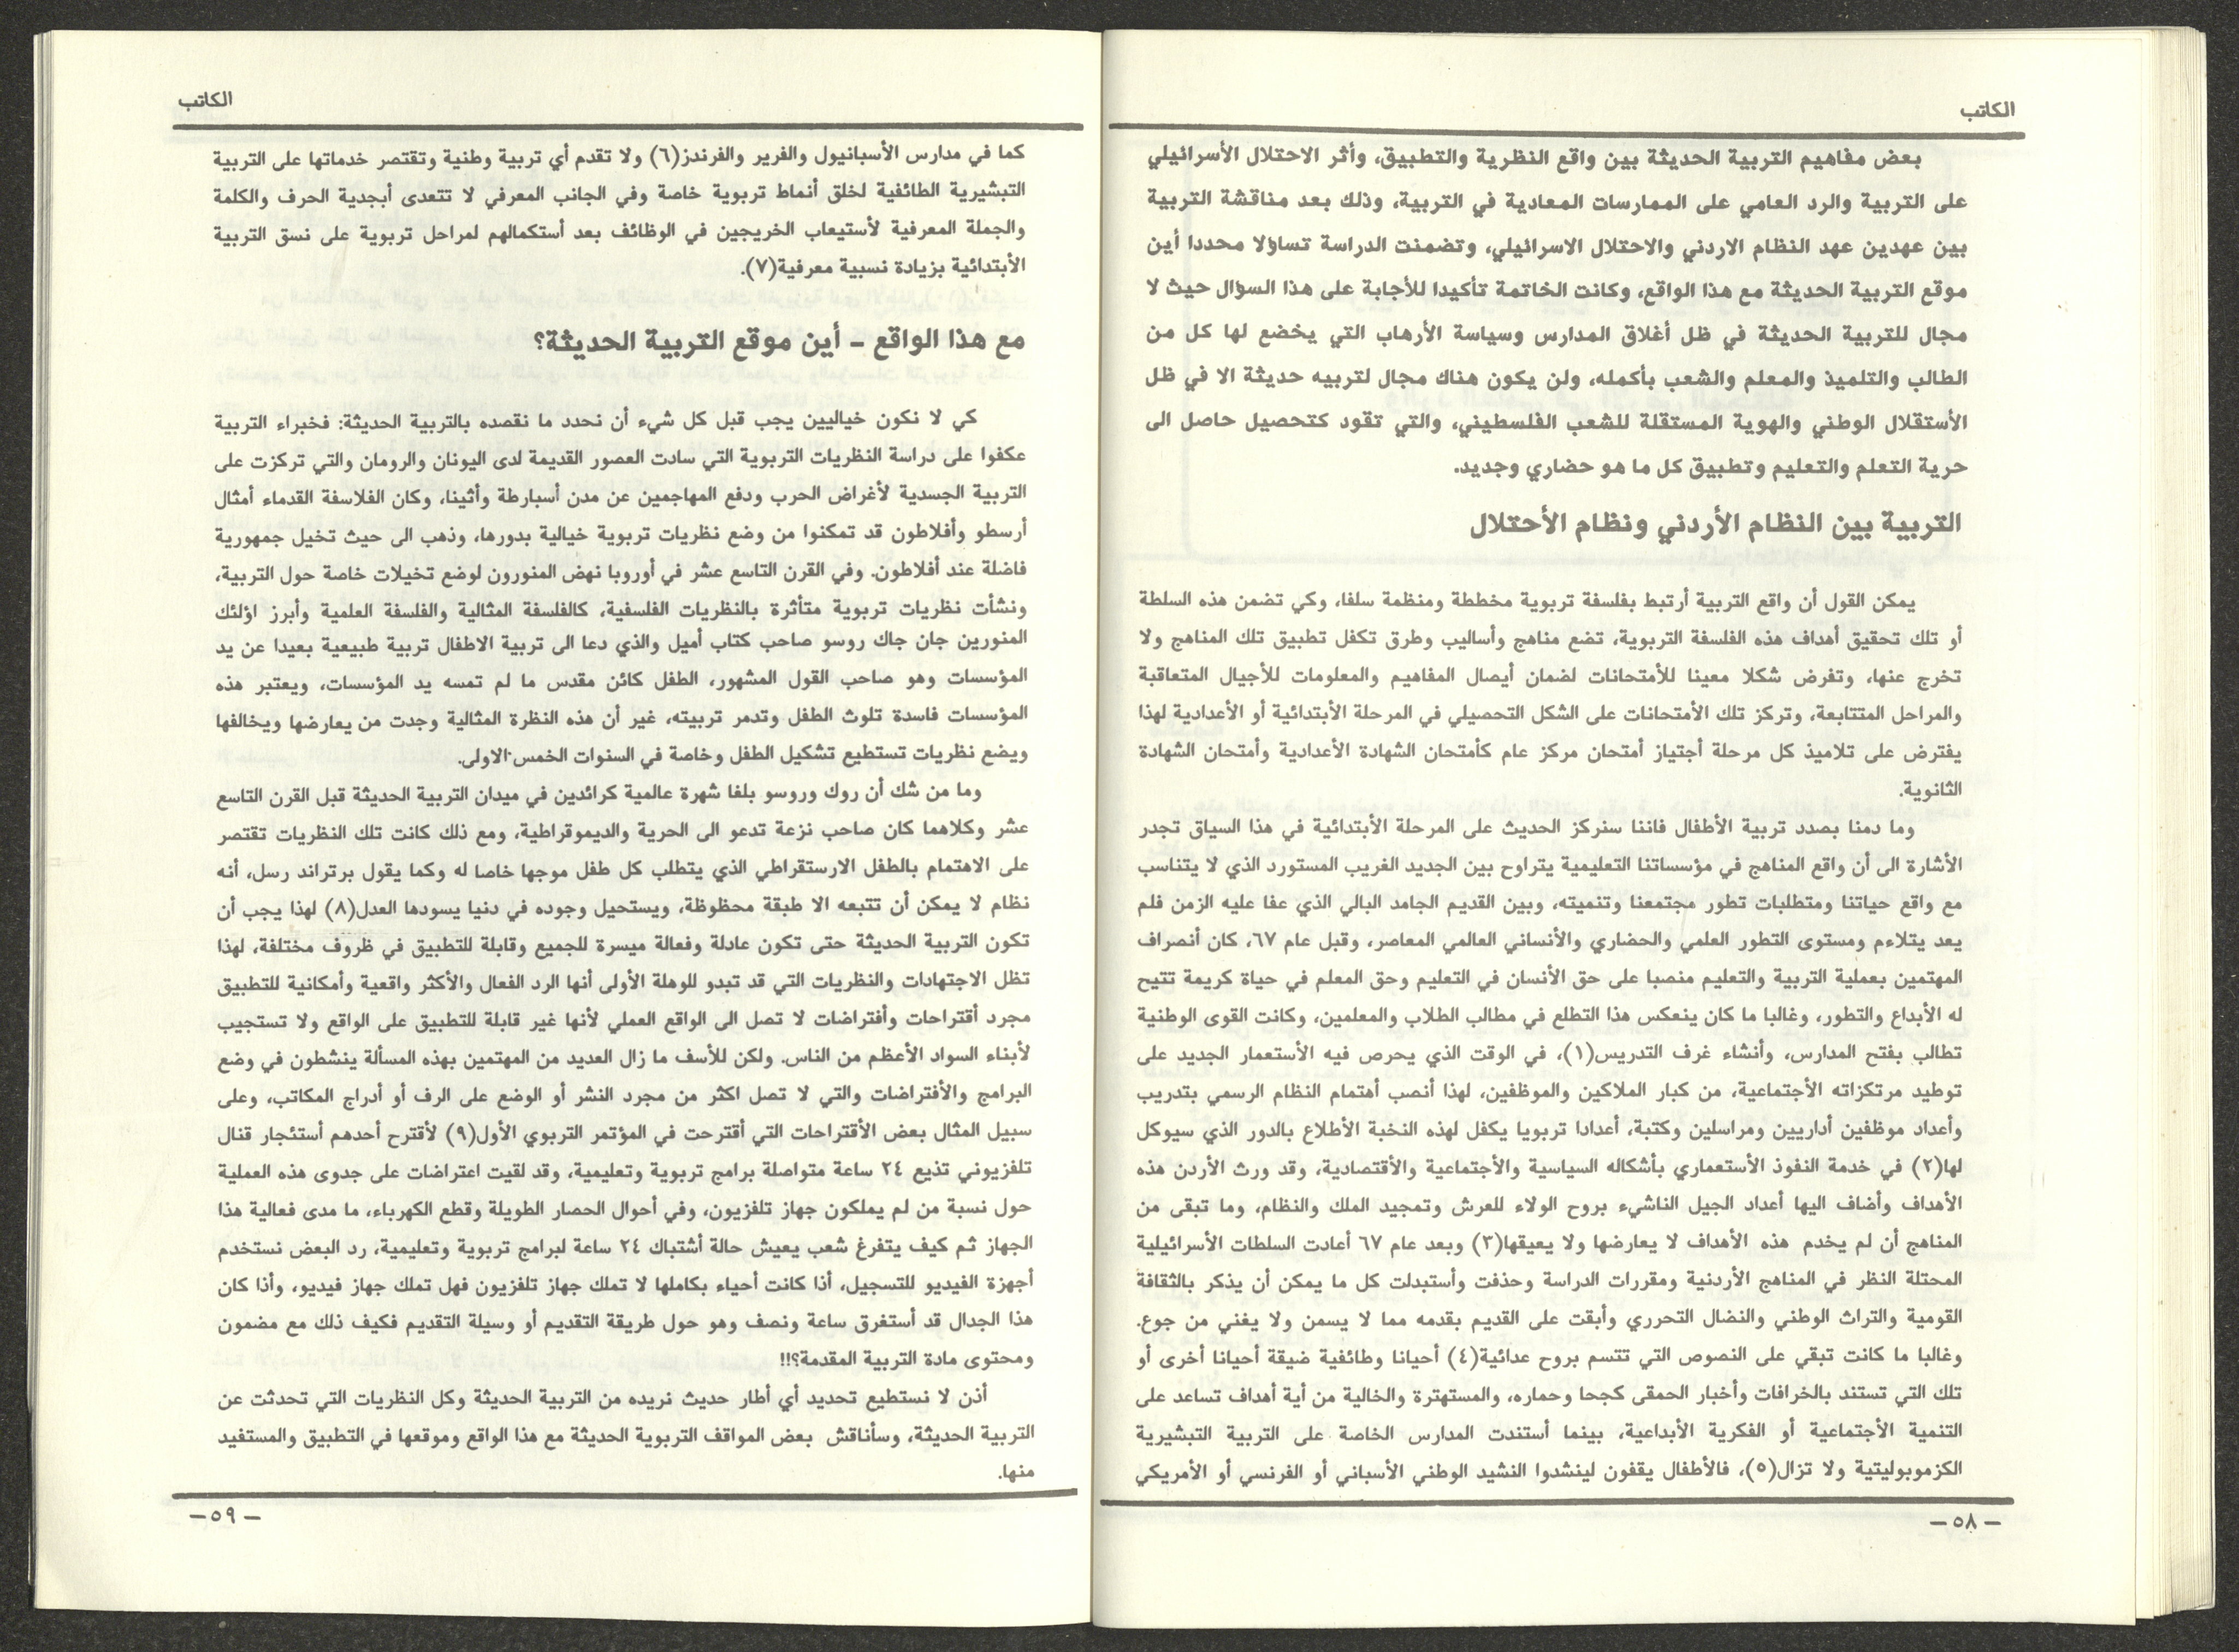 الكاتب
بعض مفاهيم التربية الحديثة بين واقع النظرية والتطبيق، وأثر الاحتلال الأسرائيلي
على التربية والرد العامي على الممارسات المعادية في التربية، وذلك بعد مناقشة التربية
بين عهدين عهد النظام الاردني والاحتلال الاسرائيلي، وتضمنت الدراسة تساؤلا محددا أين
موقع التربية الحديثة مع هذا الواقع، وكانت الخاتمة تأكيدا للأجابة على هذا السؤال حيث لا
مجال للتربية الحديثة في ظل أغلاق المدارس وسياسة الأرهاب التي يخضع لها كل من
الطالب والتلميذ والمعلم والشعب بأكمله، ولن يكون هناك مجال لتربيه حديثة الا في ظل
الأستقلال الوطني والهوية المستقلة للشعب الفلسطيني، والتي تقود كتحصيل حاصل الى
حرية التعلم والتعليم وتطبيق كل ما هو حضاري وجديد.
التربية بين النظام الأردني ونظام الأحتلال
يمكن القول أن واقع التربية أرتبط بفلسفة تربوية مخططة ومنظمة سلفا، وكي تضمن هذه السلطة
أو تلك تحقيق أهداف هذه الفلسفة التربوية، تضع مناهج وأساليب وطرق تكفل تطبيق تلك المناهج ولا
تخرج عنها، وتفرض شكلا معينا للأمتحانات لضمان أيصال المفاهيم والمعلومات للأجيال المتعاقبة
والمراحل المتتابعة، وتركز تلك الأمتحانات على الشكل التحصيلي في المرحلة الأبتدائية أو الأعدادية لهذا
يفترض على تلاميذ كل مرحلة أجتياز أمتحان مركز عام كأمتحان الشهادة الأعدادية وأمتحان الشهادة
الثانوية.
وما دمنا بصدد تربية الأطفال فاننا سنركز الحديث على المرحلة الأبتدائية في هذا السياق تجدر
الأشارة الى أن واقع المناهج في مؤسساتنا التعليمية يتراوح بين الجديد الغريب المستورد الذي لا يتناسب
مع واقع حياتنا ومتطلبات تطور مجتمعنا وتنميته، وبين القديم الجامد البالي الذي عفا عليه الزمن فلم
يعد يتلاءم ومستوى التطور العلمي والحضاري والأنساني العالمي المعاصر، وقبل عام ٦٧، كان أنصراف
المهتمين بعملية التربية والتعليم منصبا على حق الأنسان في التعليم وحق المعلم في حياة كريمة تتيح
له الأبداع والتطور، وغالبا ما كان ينعكس هذا التطلع في مطالب الطلاب والمعلمين، وكانت القوى الوطنية
تطالب بفتح المدارس، وأنشاء غرف التدريس(١)، في الوقت الذي يحرص فيه الأستعمار الجديد على
توطيد مرتكزاته الأجتماعية، من كبار الملاكين والموظفين، لهذا أنصب أهتمام النظام الرسمي بتدريب
وأعداد موظفين أداريين ومراسلين وكتبة، أعدادا تربويا يكفل لهذه النخبة الأطلاع بالدور الذي سيوكل
لها(٢) في خدمة النفوذ الأستعماري بأشكاله السياسية والأجتماعية والأقتصادية، وقد ورث الأردن هذه
الأهداف وأضاف اليها أعداد الجيل الناشيء بروح الولاء للعرش وتمجيد الملك والنظام، وما تبقى من
المناهج أن لم يخدم هذه الأهداف لا يعارضها ولا يعيقها(٣) وبعد عام ٦٧ أعادت السلطات الأسرائيلية
المحتلة النظر في المناهج الأردنية ومقررات الدراسة وحذفت وأستبدلت كل ما يمكن أن يذكر بالثقافة
القومية والتراث الوطني والنضال التحرري وأبقت على القديم بقدمه مما لا يسمن ولا يغني من جوع.
وغالبا ما كانت تبقي على النصوص التي تتسم بروح عدائية(٤) أحيانا وطائفية ضيقة أحيانا أخرى أو
تلك التي تستند بالخرافات وأخبار الحمقى كجحا وحماره، والمستهترة والخالية من أية أهداف تساعد على
التنمية الأجتماعية أو الفكرية الأبداعية، بينما أستندت المدارس الخاصة على التربية التبشيرية
الكزموبوليتية ولا تزال(٥)، فالأطفال يقفون لينشدوا النشيد الوطني الأسباني أو الفرنسي أو الأمريكي
– ٥٨ –
الكاتب
كما في مدارس الأسبانيول والفرير والفرندز(٦) ولا تقدم أي تربية وطنية وتقتصر خدماتها على التربية
التبشيرية الطائفية لخلق أنماط تربوية خاصة وفي الجانب المعرفي لا تتعدى أبجدية الحرف والكلمة
والجملة المعرفية لأستيعاب الخريجين في الوظائف بعد أستكمالهم لمراحل تربوية على نسق التربية
الأبتدائية بزيادة نسبية معرفية(٧).
مع هذا الواقع – أين موقع التربية الحديثة؟
كي لا نكون خياليين يجب قبل كل شيء أن نحدد ما نقصده بالتربية الحديثة: فخبراء التربية
عكفوا على دراسة النظريات التربوية التي سادت العصور القديمة لدى اليونان والرومان والتي تركزت على
التربية الجسدية لأغراض الحرب ودفع المهاجمين عن مدن أسبارطة وأثينا، وكان الفلاسفة القدماء أمثال
أرسطو وأفلاطون قد تمكنوا من وضع نظريات تربوية خيالية بدورها، وذهب الى حيث تخيل جمهورية
فاضلة عند أفلاطون. وفي القرن التاسع عشر في أوروبا نهض المنورون لوضع تخيلات خاصة حول التربية،
ونشأت نظريات تربوية متأثرة بالنظريات الفلسفية، كالفلسفة المثالية والفلسفة العلمية وأبرز اؤلئك
المنورين جان جاك روسو صاحب كتاب أميل والذي دعا الى تربية الاطفال تربية طبيعية بعيدا عن يد
المؤسسات وهو صاحب القول المشهور، الطفل كائن مقدس ما لم تمسه يد المؤسسات، ويعتبر هذه
المؤسسات فاسدة تلوث الطفل وتدمر تربيته، غير أن هذه النظرة المثالية وجدت من يعارضها ويخالفها
ويضع نظريات تستطيع تشكيل الطفل وخاصة في السنوات الخمس الاولى.
وما من شك أن روك وروسو بلغا شهرة عالمية كرائدين في ميدان التربية الحديثة قبل القرن التاسع
عشر وكلاهما كان صاحب نزعة تدعو الى الحرية والديموقراطية، ومع ذلك كانت تلك النظريات تقتصر
على الاهتمام بالطفل الارستقراطي الذي يتطلب كل طفل موجها خاصا له وكما يقول برتراند رسل، أنه
نظام لا يمكن أن تتبعه الا طبقة محظوظة، ويستحيل وجوده في دنيا يسودها العدل(٨) لهذا يجب أن
تكون التربية الحديثة حتى تكون عادلة وفعالة ميسرة للجميع وقابلة للتطبيق في ظروف مختلفة، لهذا
تظل الاجتهادات والنظريات التي قد تبدو للوهلة الأولى أنها الرد الفعال والأكثر واقعية وأمكانية للتطبيق
مجرد أقتراحات وأفتراضات لا تصل الى الواقع العملي لأنها غير قابلة للتطبيق على الواقع ولا تستجيب
لأبناء السواد الأعظم من الناس. ولكن للأسف ما زال العديد من المهتمين بهذه المسألة ينشطون في وضع
البرامج والأفتراضات والتي لا تصل اكثر من مجرد النشر أو الوضع على الرف أو أدراج المكاتب، وعلى
سبيل المثال بعض الأقتراحات التي أقترحت في المؤتمر التربوي الأول(٩) لأقترح أحدهم أستئجار قنال
تلفزيوني تذيع ٢٤ ساعة متواصلة برامج تربوية وتعليمية، وقد لقيت اعتراضات على جدوى هذه العملية
حول نسبة من لم يملكون جهاز تلفزيون، وفي أحوال الحصار الطويلة وقطع الكهرباء، ما مدى فعالية هذا
الجهاز ثم كيف يتفرغ شعب يعيش حالة أشتباك ٢٤ ساعة لبرامج تربوية وتعليمية، رد البعض نستخدم
أجهزة الفيديو للتسجيل، أذا كانت أحياء بكاملها لا تملك جهاز تلفزيون فهل تملك جهاز فيديو، وأذا كان
هذا الجدال قد أستغرق ساعة ونصف وهو حول طريقة التقديم أو وسيلة التقديم فكيف ذلك مع مضمون
ومحتوى مادة التربية المقدمة؟!!
أذن لا نستطيع تحديد أي أطار حديث نريده من التربية الحديثة وكل النظريات التي تحدثت عن
التربية الحديثة، وسأناقش بعض المواقف التربوية الحديثة مع هذا الواقع وموقعها في التطبيق والمستفيد
منها.
– ٥٩ –